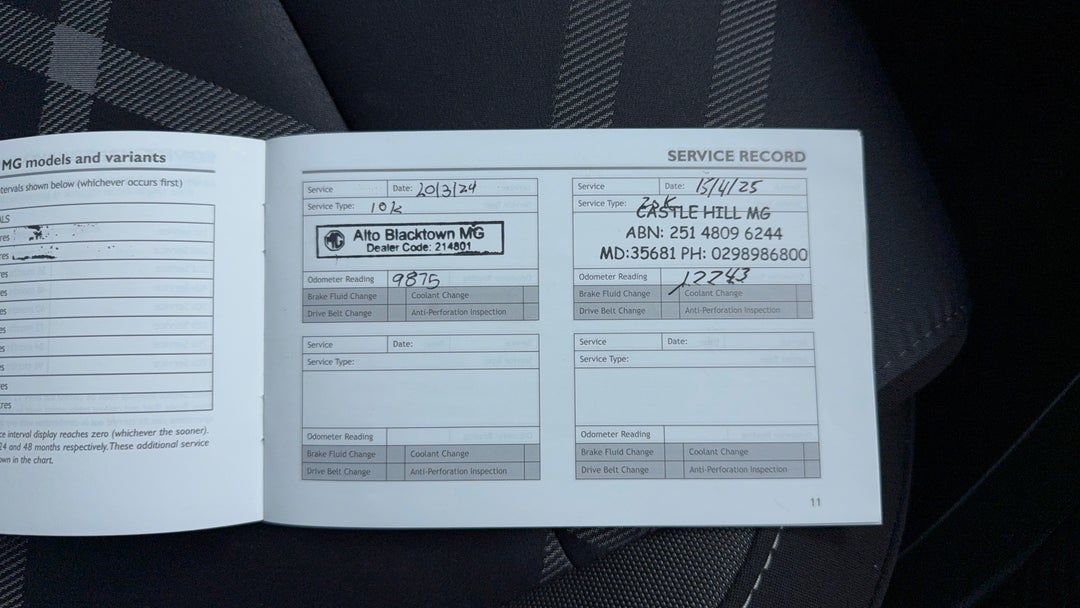 MG models and variants
tervals shown below (whichever occurs first)
ALS
res
res
es
es
es
es
es
es
es
res
ce interval display reaches zero (whichever the sooner).
24 and 48 months respectively. These additional service
own in the chart.
SERVICE RECORD
Service Date: 20/3/24
Service Type: 10k
MG Alto Blacktown MG
Dealer Code: 214801
Odometer Reading 9875
Brake Fluid Change Coolant Change
Drive Belt Change Anti-Perforation Inspection
Service Date: 15/4/25
Service Type: 20k
CASTLE HILL MG
ABN: 251 4809 6244
MD:35681 PH: 0298986800
Odometer Reading 12243
Brake Fluid Change Coolant Change
Drive Belt Change Anti-Perforation Inspection
Service Date:
Service Type:
Odometer Reading
Brake Fluid Change Coolant Change
Drive Belt Change Anti-Perforation Inspection
Service Date:
Service Type:
Odometer Reading
Brake Fluid Change Coolant Change
Drive Belt Change Anti-Perforation Inspection
11